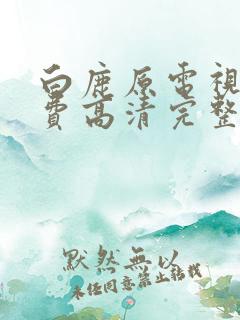 白鹿原電視
費高清完整
默然無以
未经同意禁止转载